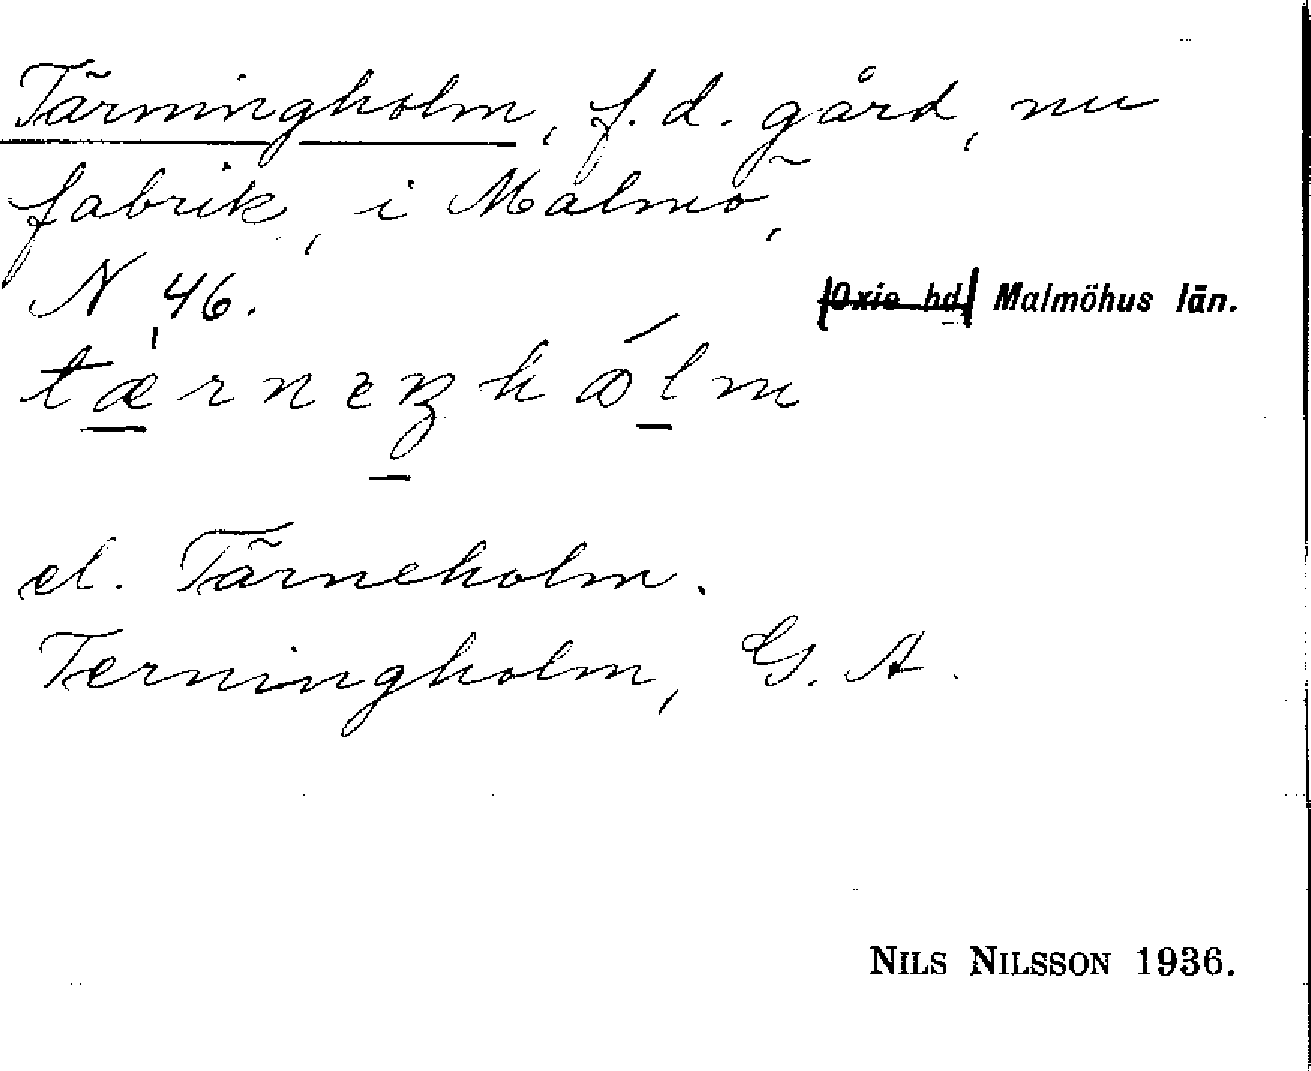 Tärningholm, f.d. gård, nu
fabrik, i Malmö,
N 46.
[Oxie hd] Malmöhus län.
el. Tärneholm.
Terningholm, G. A.
NILS NILSSON 1936.